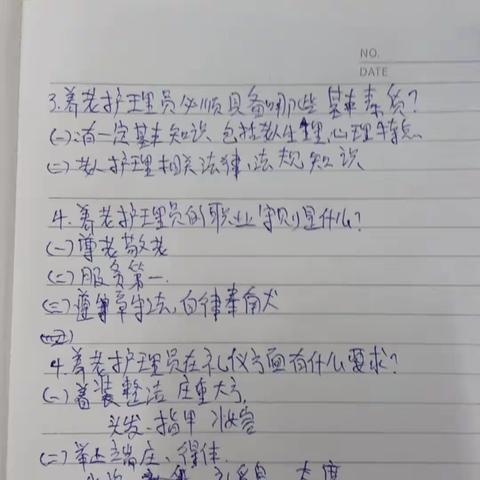 NO.
DATE
3.养老护理员必须具备哪些基本素质?
(一)有一定基本知识 包括老人生理,心理特点
(二)老人护理相关法律,法规知识
4.养老护理员的职业守则是什么?
(一)尊老敬老
(二)服务第一.
(三)遵章守法,自律奉献
4.养老护理员在礼仪方面有什么要求?
(一)着装整洁 庄重大方,
头发.指甲 妆容
(二)举止端庄、得体.
态度